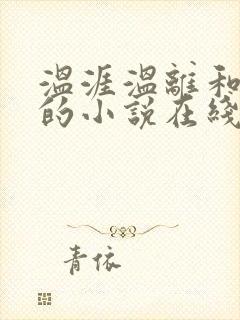 温涯温離和
的小说在綫
青依